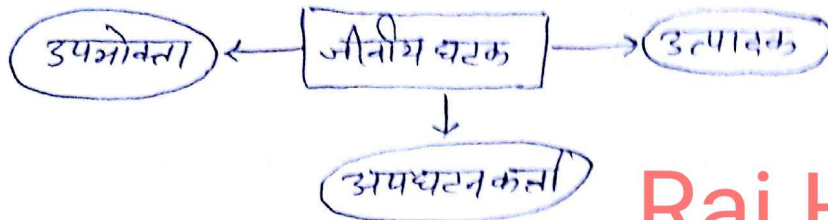 उपभोक्ता ← जीवीय घटक → उत्पादक
↓
अपघटनकर्ता
Raj H